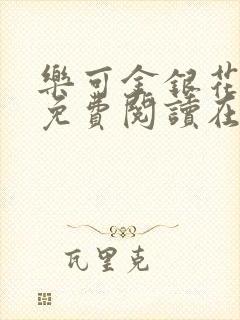 樂可金銀花
免費閱讀在
瓦里克